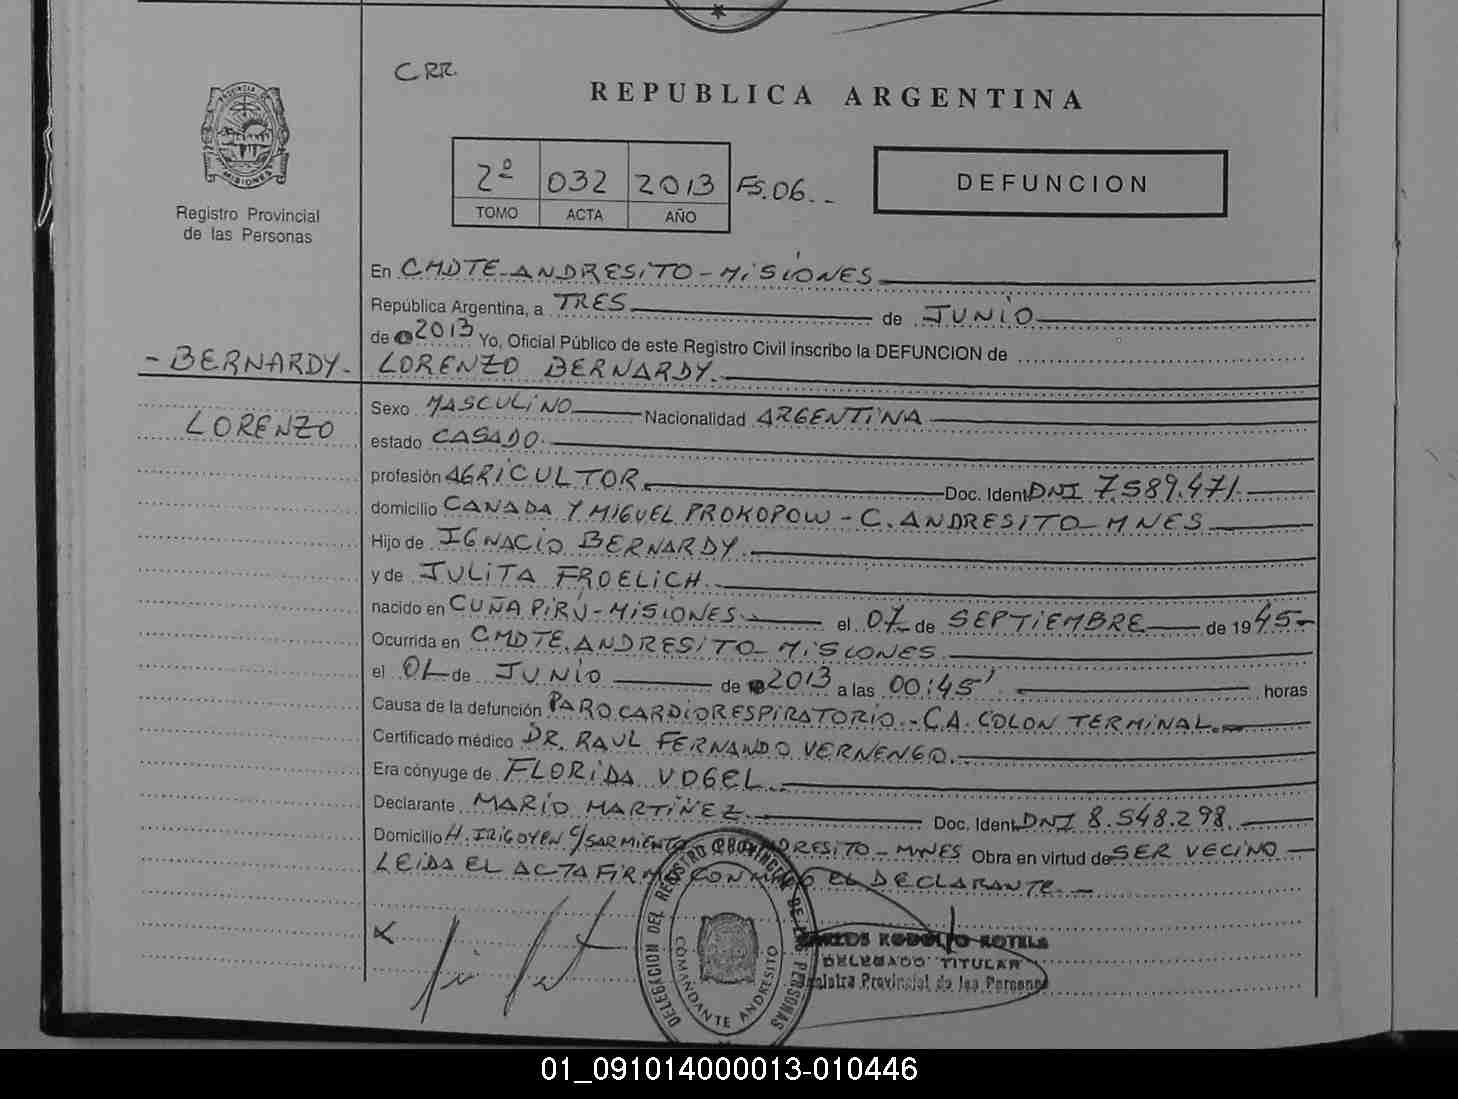 CRR.
REPUBLICA ARGENTINA
PROVINCIA DE
MISIONES
2º 032 2013 FS.06.-
TOMO ACTA AÑO
DEFUNCION
Registro Provincial
de las Personas
En CMDTE.ANDRESITO-MISIONES
República Argentina, a TRES de JUNIO
de 2013 Yo, Oficial Público de este Registro Civil inscribo la DEFUNCION de
-BERNARDY.
LORENZO BERNARDY.
LORENZO
Sexo MASCULINO Nacionalidad ARGENTINA
estado CASADO.
profesión AGRICULTOR. Doc. Ident. DNI 7.589.471.
domicilio CANADA Y MIGUEL PROKOPOW - C.ANDRESITO-MNES
Hijo de IGNACIO BERNARDY.
y de JULITA FROELICH.
nacido en CUÑA PIRÚ-MISIONES el 07 de SEPTIEMBRE de 1945-
Ocurrida en CMDTE.ANDRESITO-MISIONES
el 01 de JUNIO de 2013 a las 00:45' horas
Causa de la defunción PARO CARDIORESPIRATORIO.-C.A. COLON TERMINAL.
Certificado médico DR. RAUL FERNANDO VERNENGO.
Era cónyuge de FLORIDA VOGEL.
Declarante MARIO MARTINEZ. Doc. Ident. DNI 8.548.298.
Domicilio H.IRIGOYEN C/SARMIENTO ANDRESITO-MNES Obra en virtud de SER VECINO
LEIDA EL ACTA FIRMA CONMIGO EL DECLARANTE.-
DELEGACION DEL REGISTRO PROVINCIAL DE LAS PERSONAS
COMANDANTE ANDRESITO
CARLOS RODOLFO ROTELA
DELEGADO TITULAR
Registro Provincial de las Personas
01_091014000013-010446